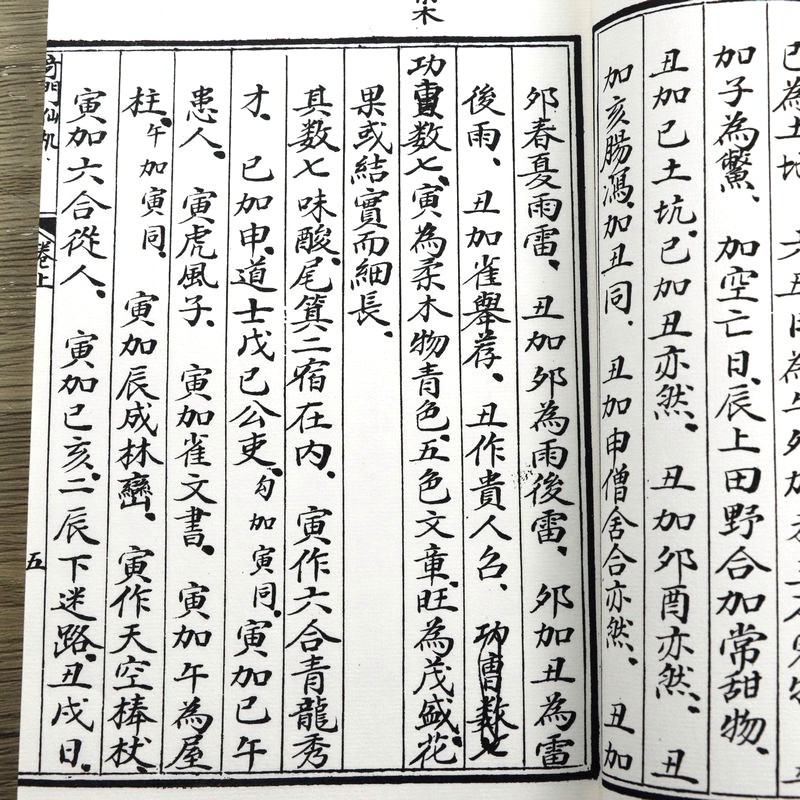 已為土坑
加子為鱉、加空亡日、辰上田野合加常甜物、
丑加巳土坑、巳加丑亦然、丑加卯酉亦然、丑
加亥腸瀉、加丑同、丑加申僧舍合亦然、丑加
卯春夏雨雷、丑加卯為雨後雷、卯加丑為雷
後雨、丑加雀舉荐、丑作貴人占、功曹数七
功曹数七、寅為柔木物青色、五色文章、旺為茂盛花
果或結實而細長、
其数七味酸、尾箕二宿在内、寅作六合青龍秀
才、巳加申、道士戊己公吏、勾加寅同、寅加巳午
患人、寅虎風子、寅加雀文書、寅加午為屋
柱、午加寅同、寅加辰成林巒、寅作天空棒杖、
寅加六合從人、寅加巳亥、二辰下迷路、丑戌日、
奇門仙机
卷上
五
木